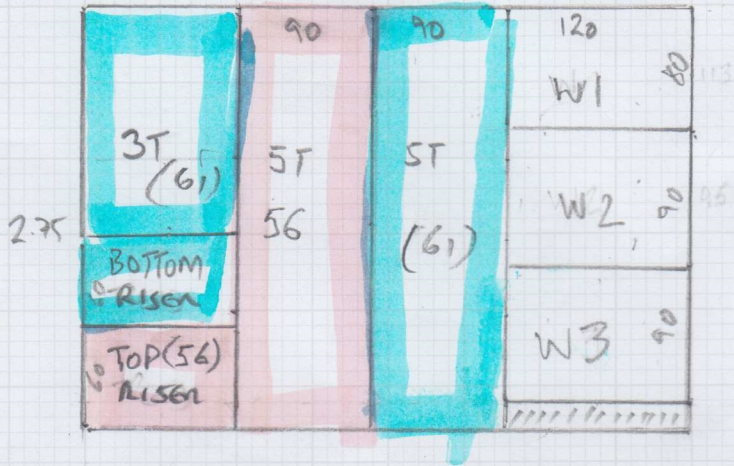 90
90
120
80
W1
3T
(61)
5T
56
5T
(61)
W2
90
2.75
BOTTOM
RISER
W3
90
TOP(56)
60
RISER